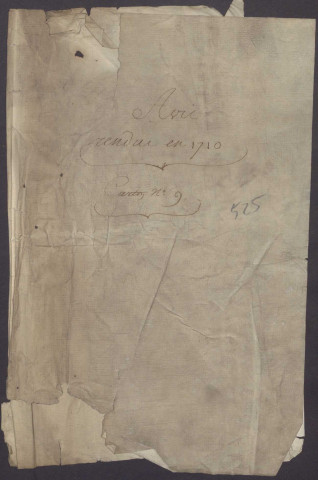 Avis
rendus en 1710
Carton N.° 9
525